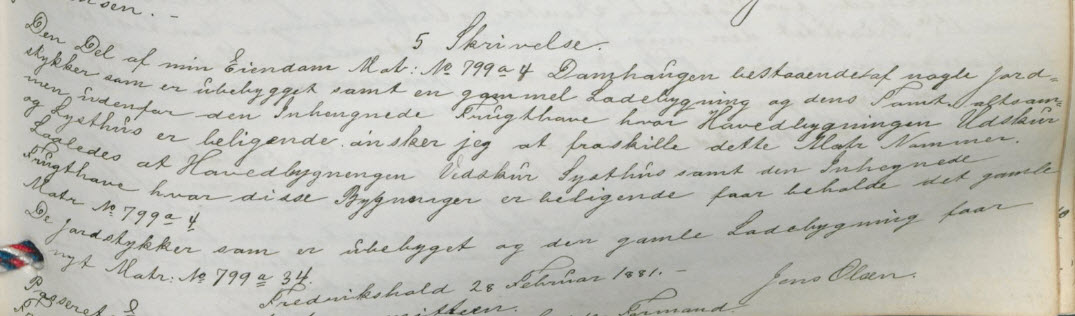 5 Skrivelse.
Den Del af min Eiendom Mat: No 799 a 4 Damhaugen bestaaende af nogle Jord=
stykker som er ubebygget samt en gammel Ladebygning og dens Tomt altsam=
men udenfor den Inhegnede Frugthave hvor Hovedbygningen Vedskur
og Lysthus er beligende. ønsker jeg at fraskille dette Matr Nummer.
Saaledes at Hovedbygningen Vedskur Lysthus samt den Inhegnede
Frugthave hvor disse Bygninger er beligende faar beholde det gamle
Matr No 799 a 4
De Jordstykker som er ubebyget og den gamle Ladebygning faar
nyt Matr: No 799 a 34.
Fredrikshald 28 Februar 1881. -
Jens Olsen.
Formand.